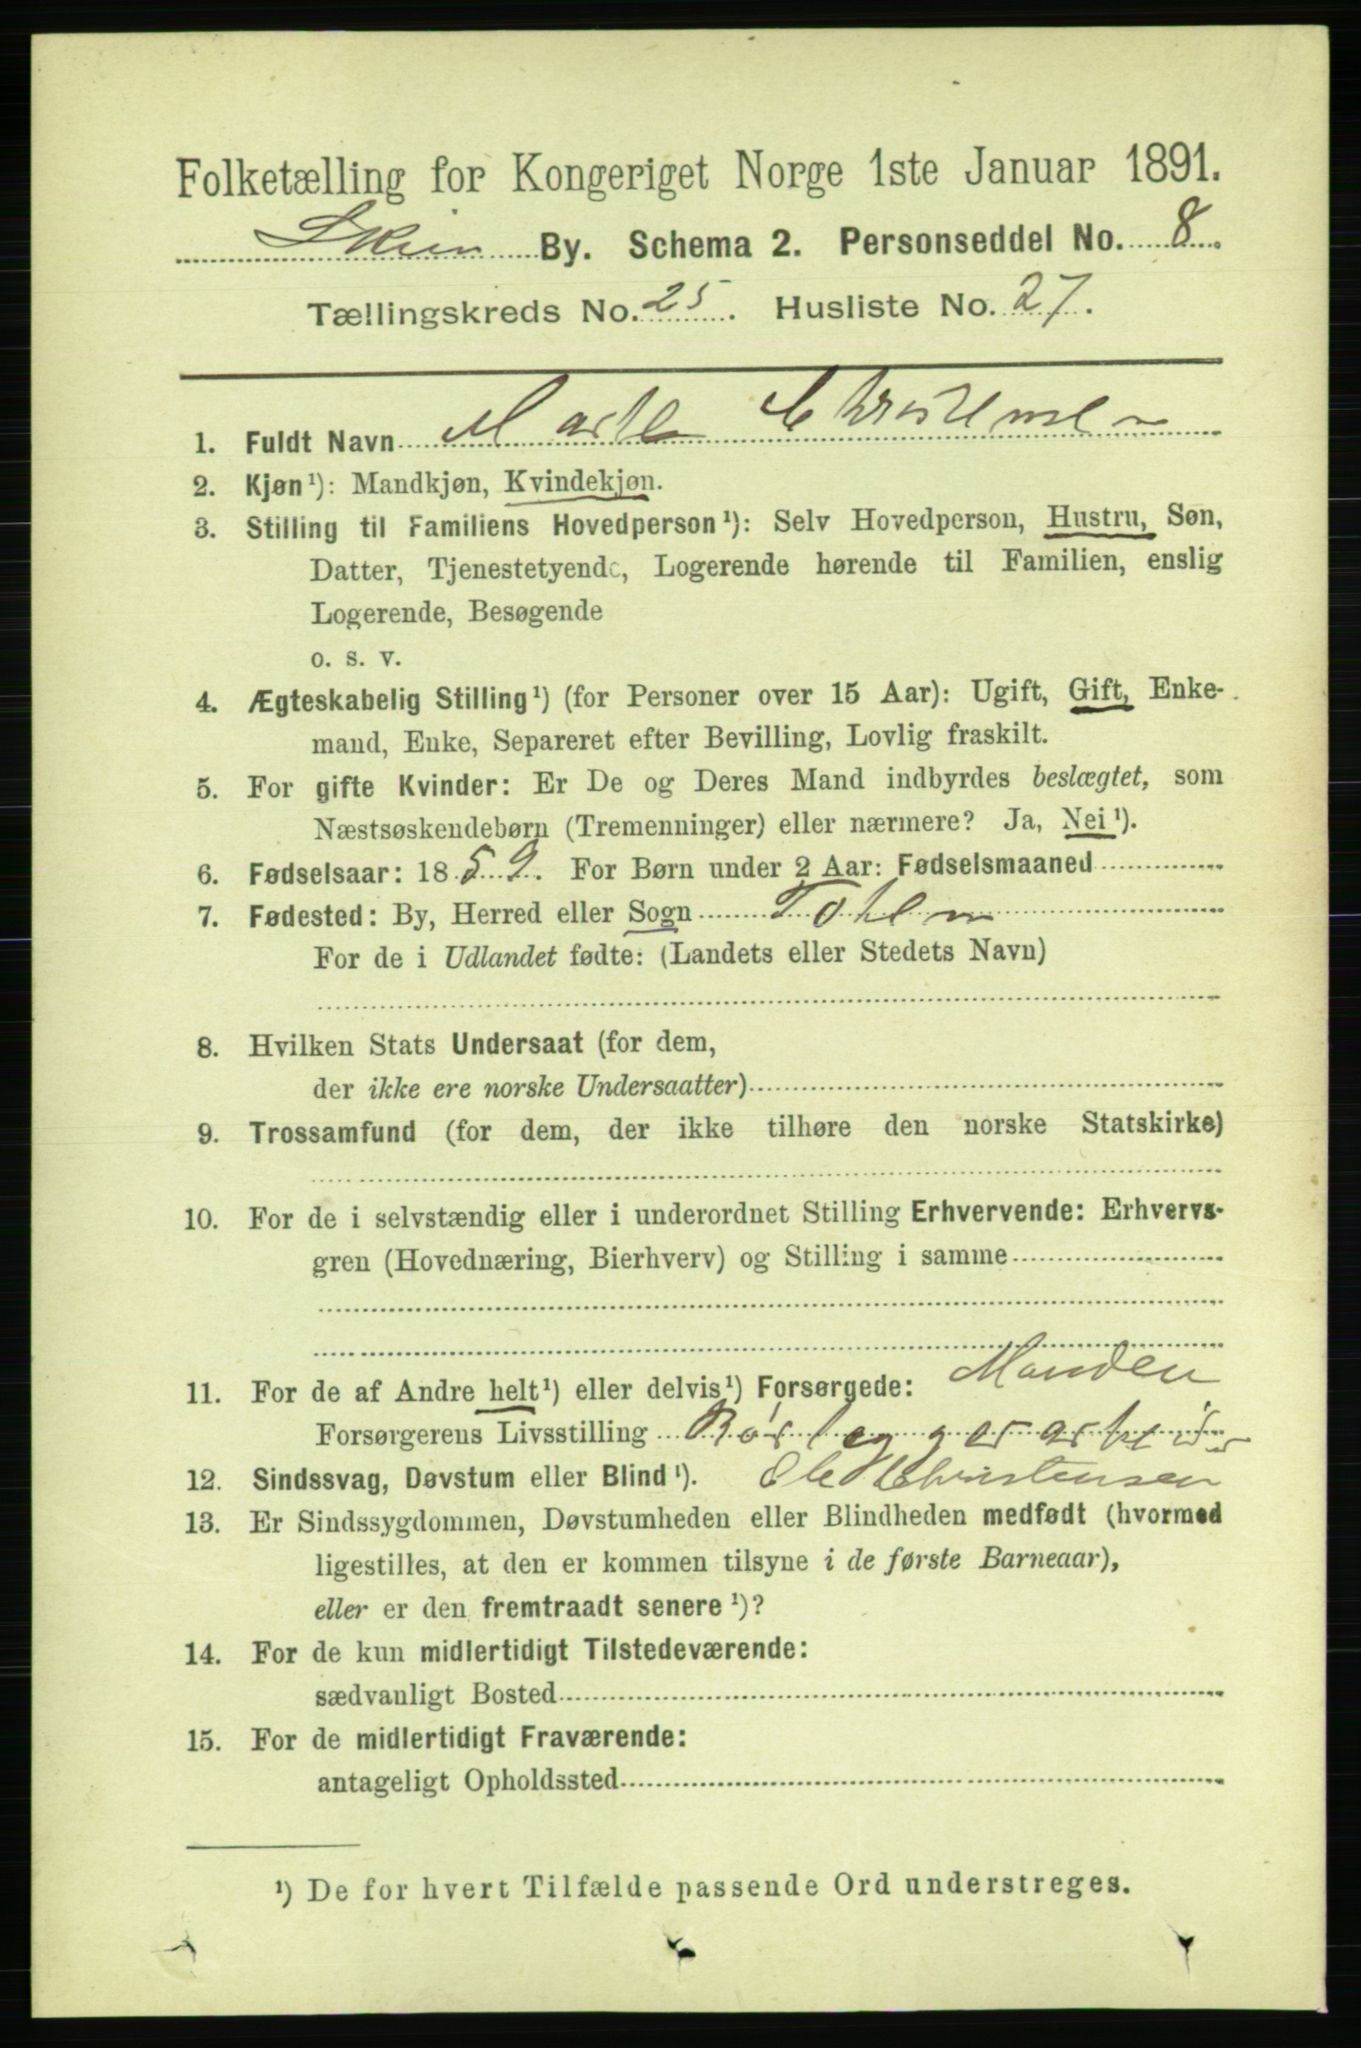 Folketælling for Kongeriget Norge 1ste Januar 1891.
Skien By. Schema 2. Personseddel No. 8.
Tællingskreds No. 25. Husliste No. 27.
1. Fuldt Navn Marte Christensen
2. Kjøn¹): Mandkjøn, Kvindekjøn.
3. Stilling til Familiens Hovedperson¹): Selv Hovedperson, Hustru, Søn,
Datter, Tjenestetyende, Logerende hørende til Familien, enslig
Logerende, Besøgende
o. s. v.
4. Ægteskabelig Stilling¹) (for Personer over 15 Aar): Ugift, Gift, Enke-
mand, Enke, Separeret efter Bevilling, Lovlig fraskilt.
5. For gifte Kvinder: Er De og Deres Mand indbyrdes beslægtet, som
Næstsøskendebørn (Tremenninger) eller nærmere? Ja, Nei¹).
6. Fødselsaar: 1859. For Børn under 2 Aar: Fødselsmaaned
7. Fødested: By, Herred eller Sogn
For de i Udlandet fødte: (Landets eller Stedets Navn)
8. Hvilken Stats Undersaat (for dem,
der ikke ere norske Undersaatter)
9. Trossamfund (for dem, der ikke tilhøre den norske Statskirke)
10. For de i selvstændig eller i underordnet Stilling Erhvervende: Erhvervs-
gren (Hovednæring, Bierhverv) og Stilling i samme
11. For de af Andre helt¹) eller delvis¹) Forsørgede: Manden
Forsørgerens Livsstilling Rørlæggerarbeider
12. Sindssvag, Døvstum eller Blind¹). Ole Christensen
13. Er Sindssygdommen, Døvstumheden eller Blindheden medfødt (hvormed
ligestilles, at den er kommen tilsyne i de første Barneaar),
eller er den fremtraadt senere¹)?
14. For de kun midlertidigt Tilstedeværende:
sædvanligt Bosted
15. For de midlertidigt Fraværende:
antageligt Opholdssted
¹) De for hvert Tilfælde passende Ord understreges.